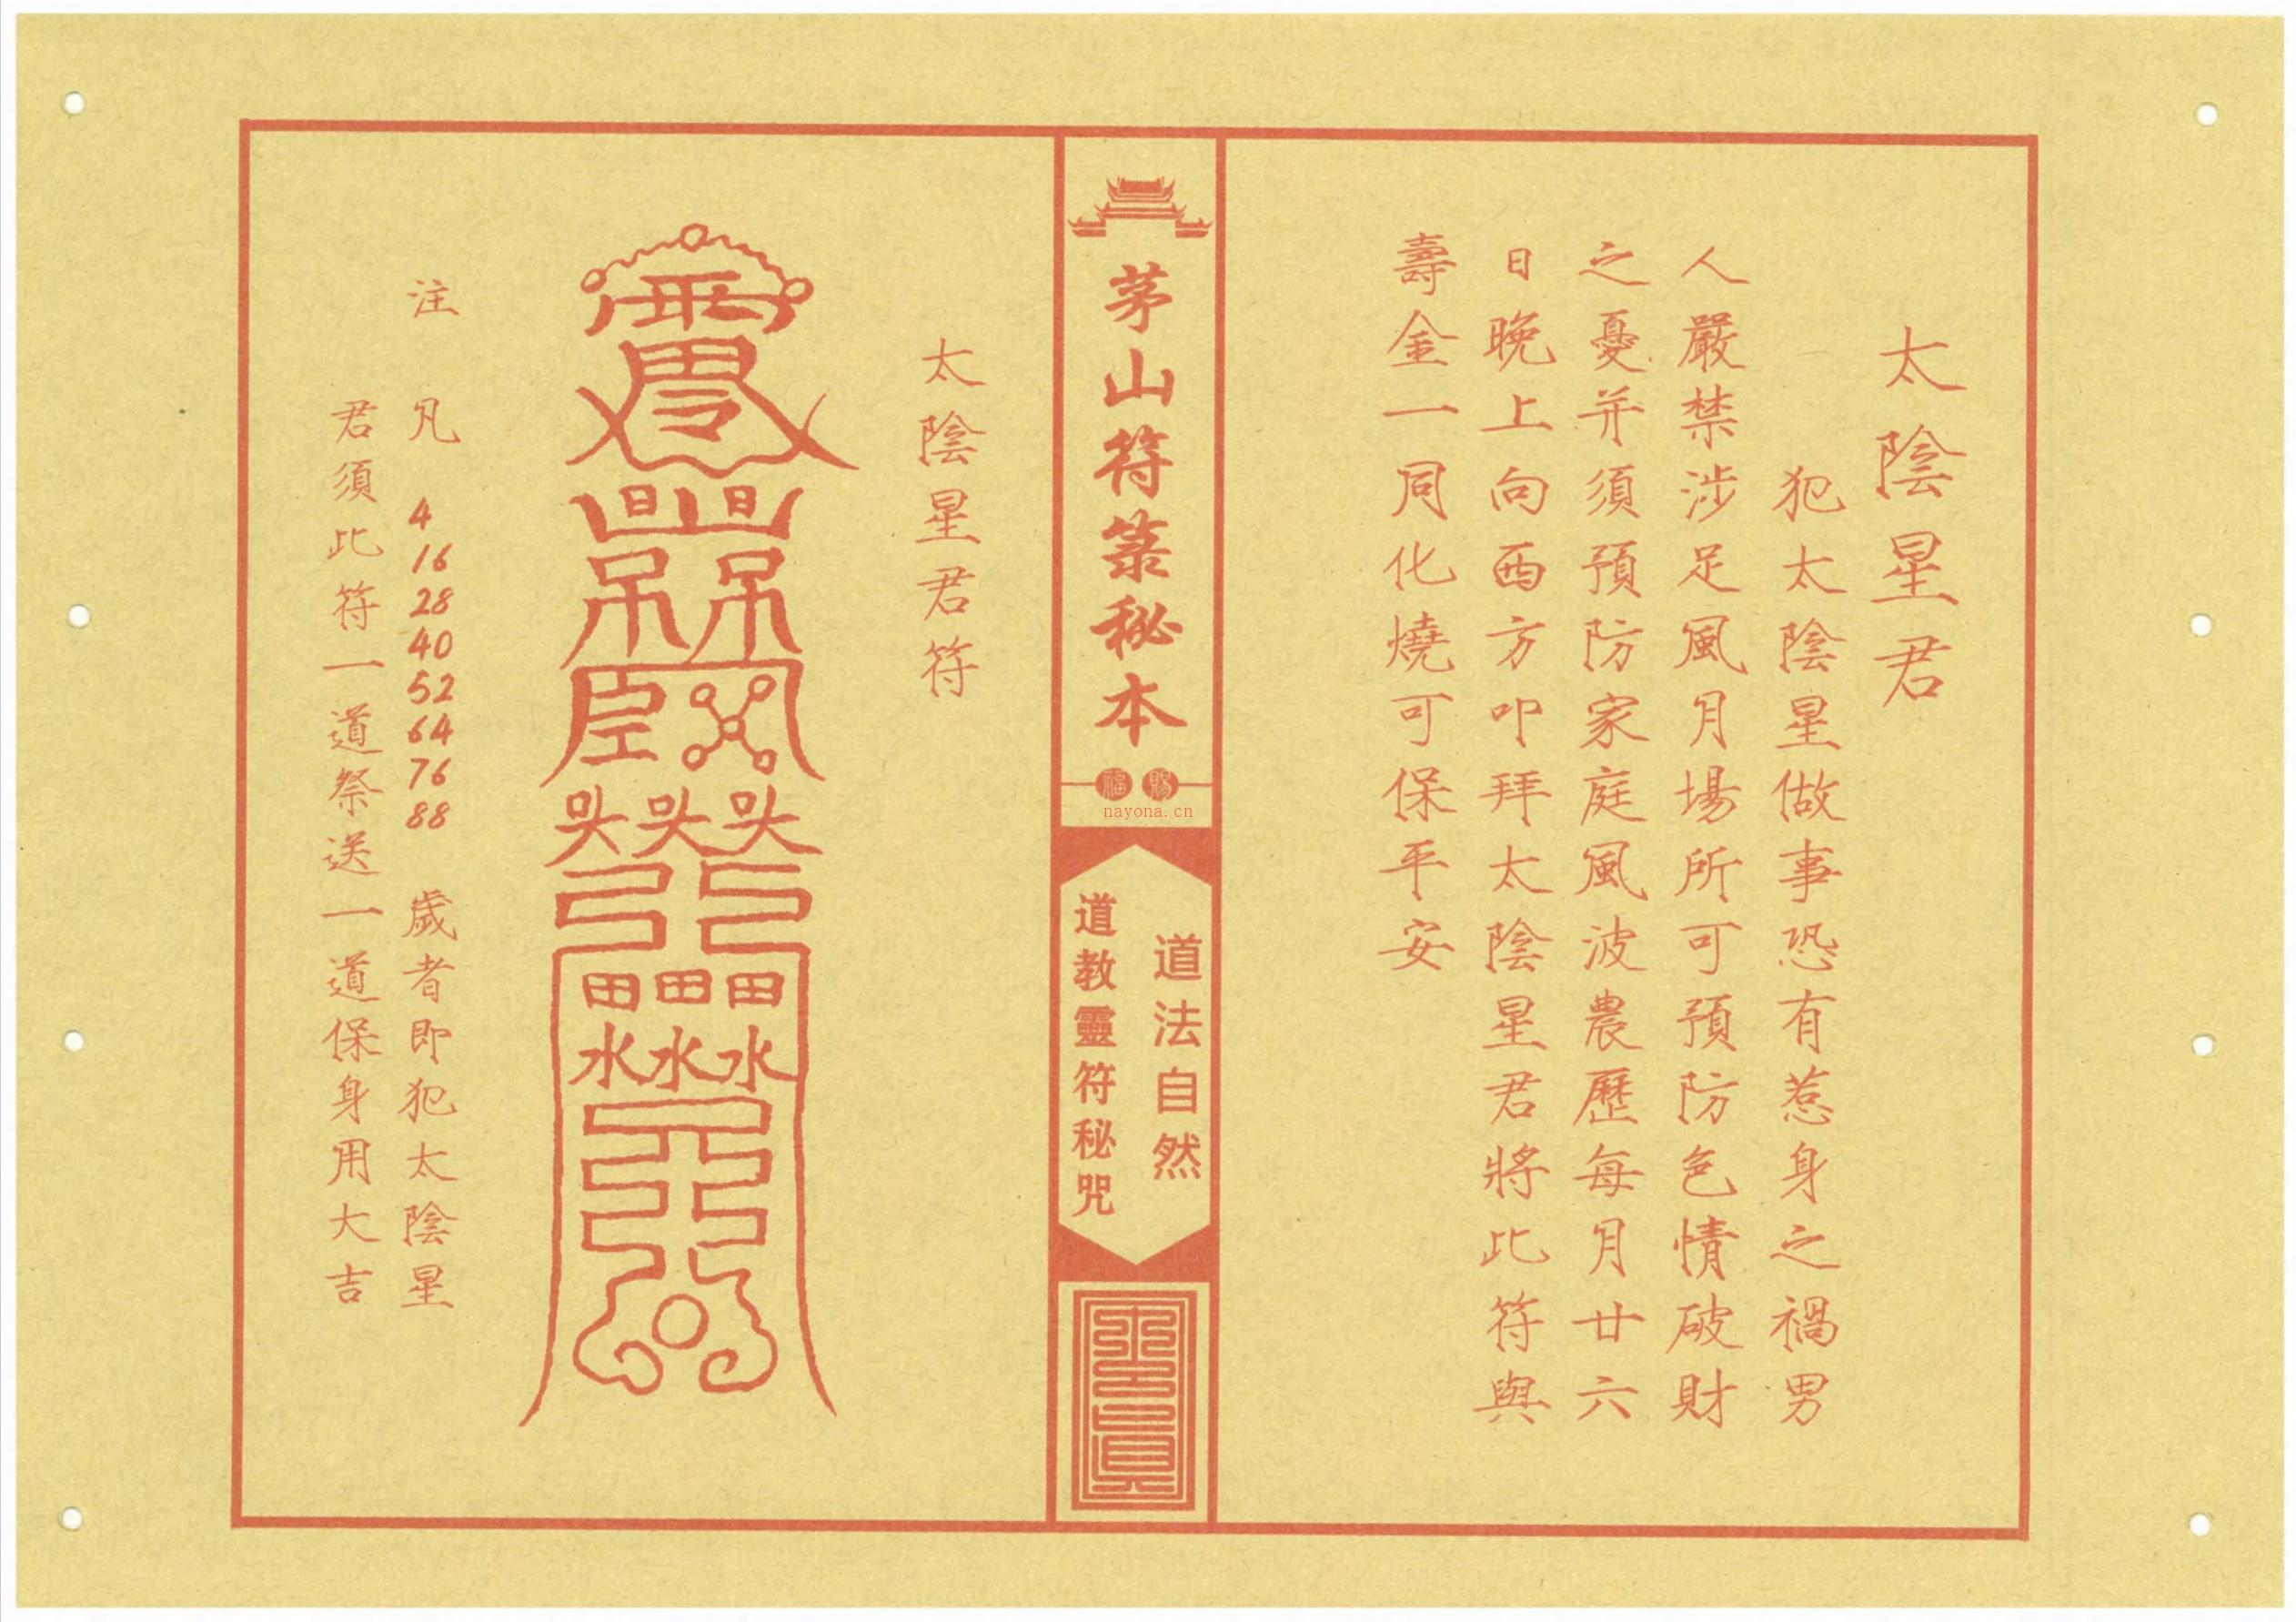 太陰星君
犯太陰星做事恐有惹身之禍男
人嚴禁涉足風月場所可預防色情破財
之憂并須預防家庭風波農歷每月廿六
日晚上向西方叩拜太陰星君將此符與
壽金一同化燒可保平安
茅山符箓秘本
賜福
nayona.cn
道法自然
道教靈符秘咒
太陰星君符
日日
田田田
水水水
注 凡 4 16 28 40 52 64 76 88 歲者即犯太陰星
君須此符一道祭送一道保身用大吉